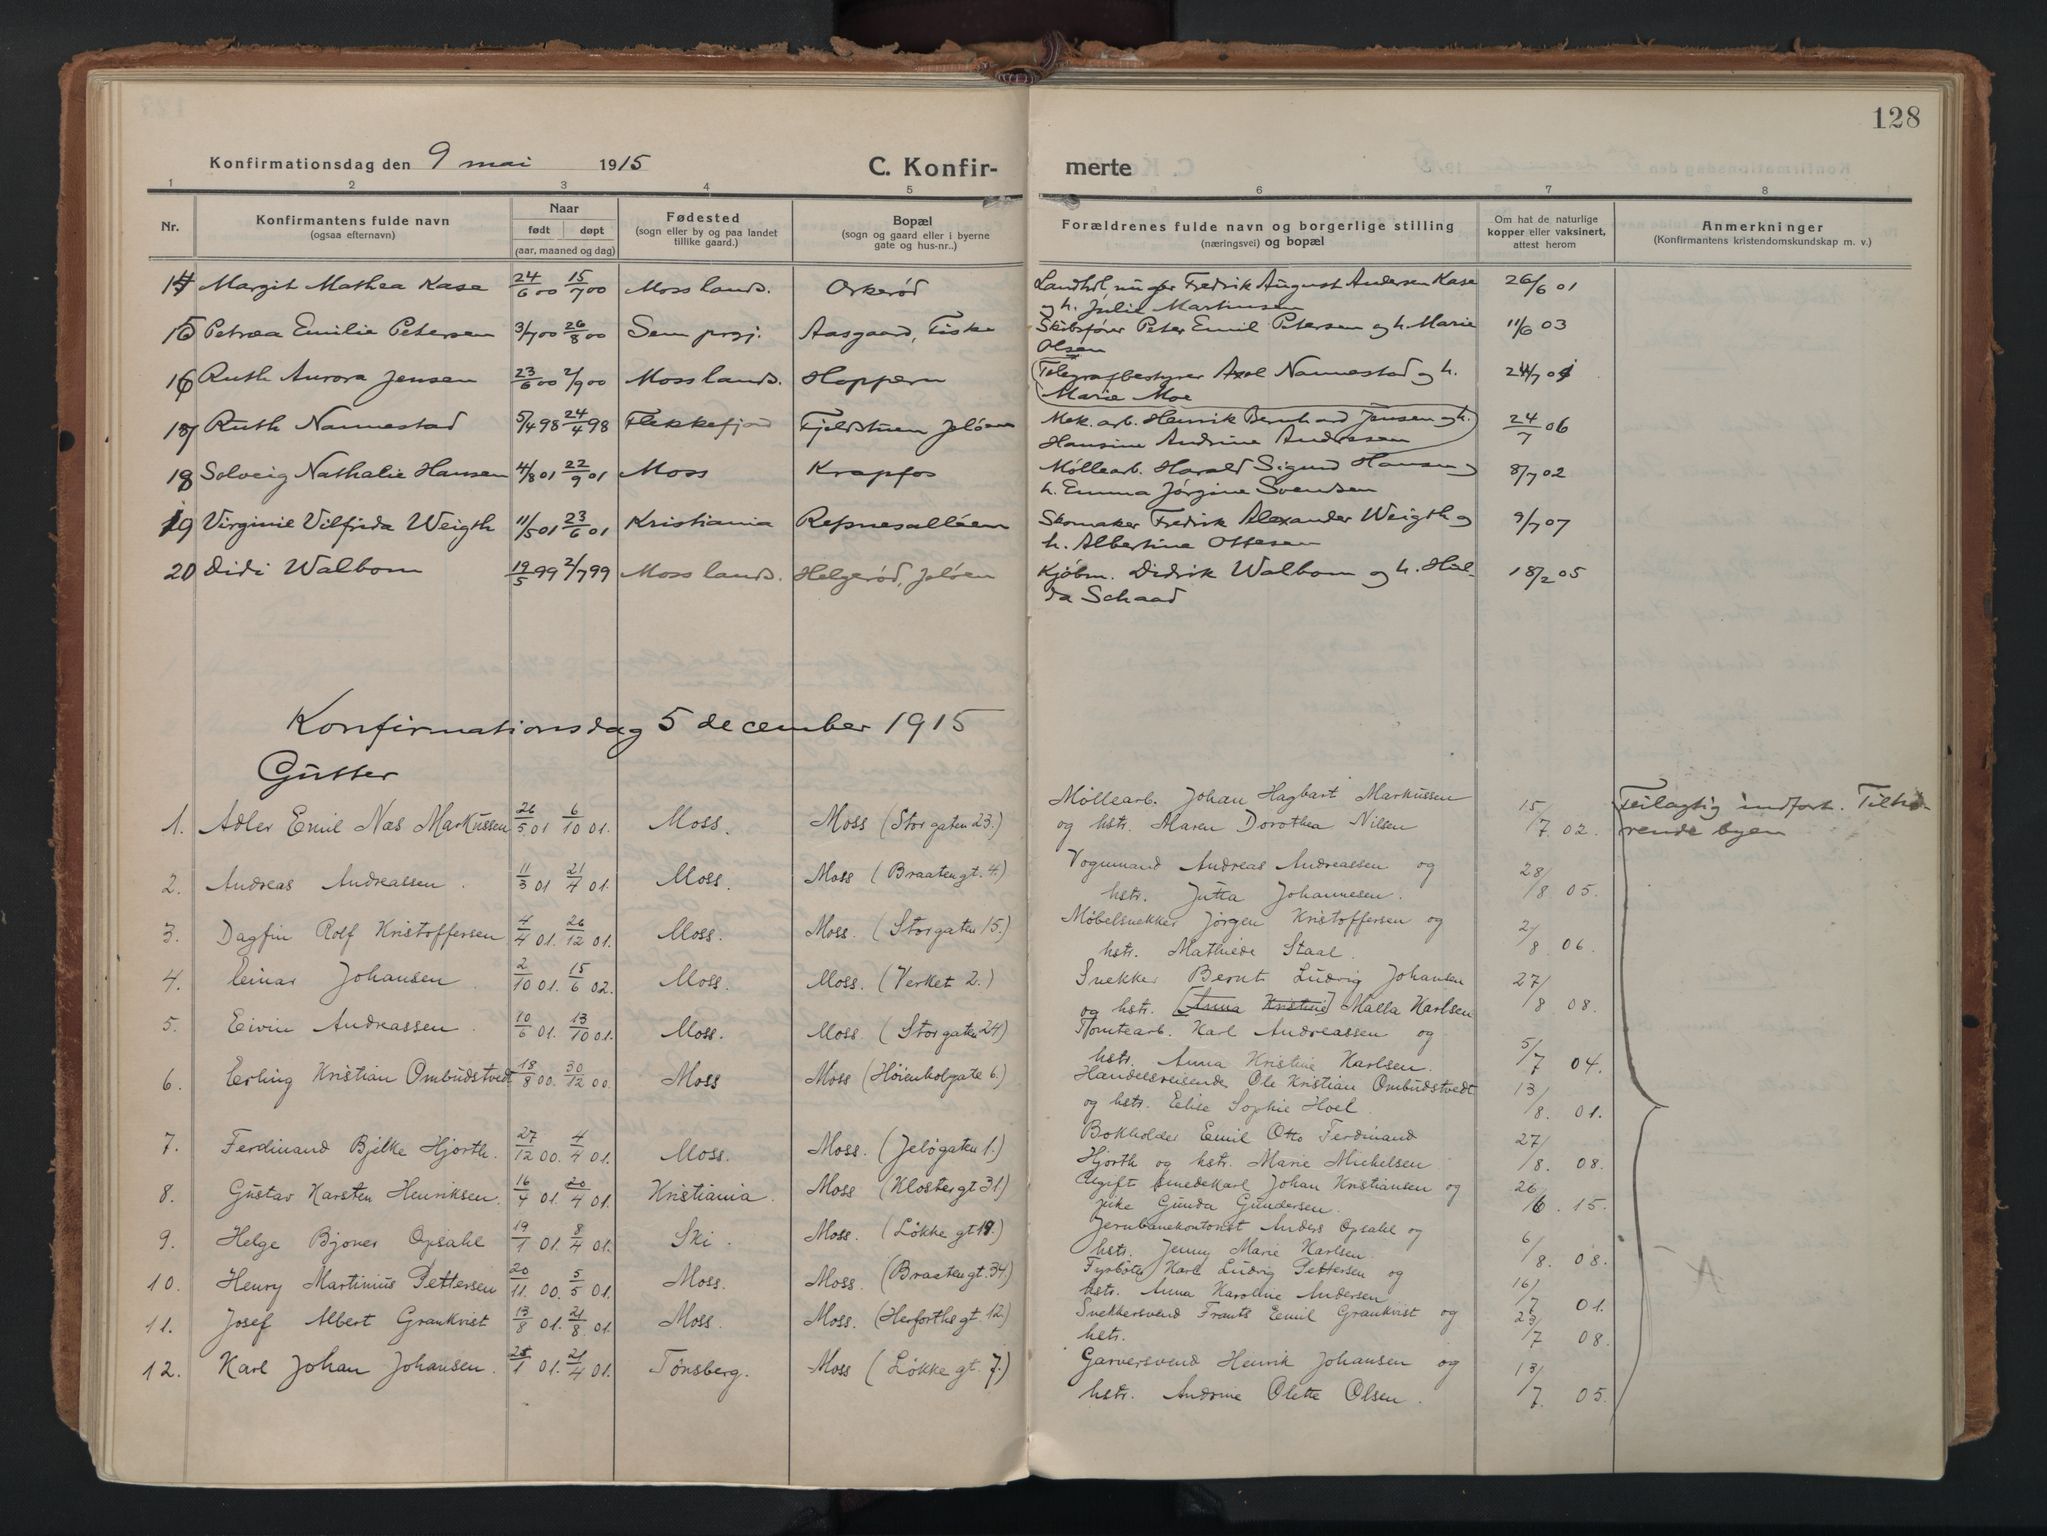 128
Konfirmationsdag den 9 mai 1915
C. Konfir-
merte
1 2 3 4 5 6 7 8
Nr. Konfirmantens fulde navn (ogsaa efternavn)
Naar født døpt (aar, maaned og dag)
Fødested (sogn eller by og paa landet tillike gaard.)
Bopæl (sogn og gaard eller i byerne gate og hus-nr..)
Forældrenes fulde navn og borgerlige stilling (næringsvei) og bopæl
Om hat de naturlige kopper eller vaksinert, attest herom
Anmerkninger (Konfirmantens kristendomskundskap m. v.)
14 Margit Mathea Kase 24/6 00 15/7 00 Moss lands. Orkerød Fredrik August Andersen Kase 26/6 01
og h. Julie Martinsen
15 Petræa Emilie Petersen 3/7 00 26/8 00 Sem prgj. Aasgaard, Fiske Skibsfører Peter Emil Petersen og h. Marie 11/6 03
Olsen
16 Ruth Aurora Jensen 23/6 00 2/9 00 Moss lands. Hoppern Telegrafbestyrer Axel Nannestad og h.
Marie Moe
17 Ruth Nannestad 5/4 98 24/4 98 Flekkefjord Fjeldstuen Jeløen Mek. arb. Henrik Bernhard Jensen og h. 24/7 06
Hansine Andrine Andresen
18 Solveig Nathalie Hansen 4/8 01 22/9 01 Moss Krapfos Møllearb. Harald Sigurd Hansen og 8/7 02
h. Emma Jørgine Svendsen
19 Virginie Vilfrida Weigth 11/5 01 23/6 01 Kristiania Refsnesalléen Skomaker Fredrik Alexander Weigth og 9/7 07
h. Albertine Ottesen
20 Didi Walbom 19/5 99 2/7 99 Moss lands. Helgerød, Jeløen Kjøbm. Didrik Walbom og h. Hul-
da Schaad 18/2 05
Konfirmationsdag 5 december 1915
Gutter
1. Adler Emil Næs Markussen 26/5 01 6/10 01. Moss. Moss (Storgaten 23.) Møllearb. Johan Hagbart Markussen 15/7 02. Feilagtig indført. Tilhø-
og hstr. Maren Dorothea Nilsen rende byen
2. Andreas Andreassen. 11/3 01 21/4 01. Moss. Moss (Braatengt. 4.) Vognmand Andreas Andreassen og 28/8 05.
hstr. Jutta Johannesen.
3. Dagfin Rolf Kristoffersen 4/4 01. 26/12 01. Moss. Moss. (Storgaten 15.) Møbelsnekker Jørgen Kristoffersen og 2/8 06.
hstr. Mathilde Staal.
4. Einar Johansen. 2/10 01. 15/6 02. Moss. Moss. (Verket 2.) Snekker Bernt Ludvig Johansen 27/8 08.
og hstr. [Anna Kristine] Malla Karlsen
5. Eivin Andreassen. 10/6 01. 13/10 01. Moss. Moss. (Storgaten 24) Tomtearb. Karl Andreassen og 5/7 04.
hstr. Anna Kristine Karlsen.
6. Erling Kristian Ombudstvedt 18/8 00. 30/12 00. Moss Moss (Høienholgate 6.) Handelsreisende Ole Kristian Ombudstvedt 13/8. 01.
og hstr. Elise Sophie Hoel.
7. Ferdinand Bjelke Hjorth. 27/12 00. 4/4 01. Moss. Moss. (Jeløgaten 1.) Bokholder Emil Otto Ferdinand 27/8. 08.
Hjorth og hstr. Marie Michelsen
8. Gustav Karsten Henriksen. 16/4 01. 20/4 01. Kristiania. Moss (Klostergt 31) Ugift Smedekarl Johan Kristiansen og 26/6. 15.
pike Gunda Gundersen.
9. Helge Bjoner Opsahl 19/1 01. 8/4 01. Ski. Moss. (Løkke gt 19.) Jernbanekontorist Anders Opsahl og 6/8. 08.
hstr. Jenny Marie Karlsen.
10. Henry Martinius Pettersen 20/11. 00. 5/5 01. Moss. Moss. (Braatengt. 34.) Fyrbøter Karl Ludvig Pettersen og 16/7 01.
hstr. Anna Karoline Andersen
11. Josef Albert Grankvist 13/8 01. 21/8. 01. Moss. Moss. (Herforthsgt. 12.) Snekkersvend Frants Emil Grankvist og 23/7 08.
hstr.
12. Karl Johan Johansen. 01. 21/4 01. Tønsberg. Moss (Løkke gt. 7.) Garversvend Henrik Johansen og 13/7. 05.
hstr. Andrine Olette Olsen.